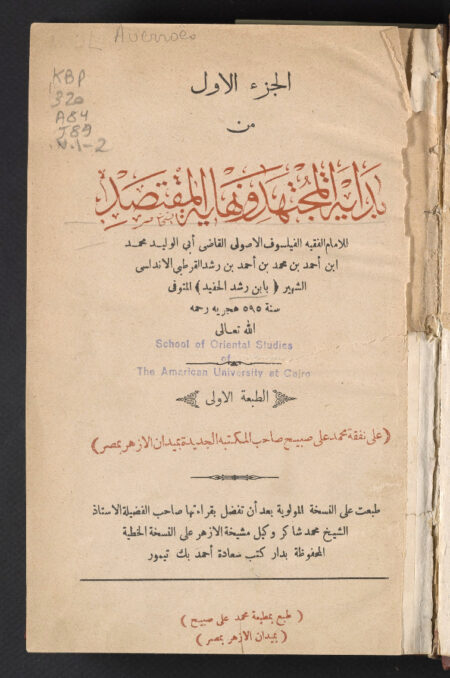 Averroes
KBP
320
A84
J89
V.1-2
الجزء الاول
من
بداية المجتهد ونهاية المقتصد
للامام الفقيه الفيلسوف الاصولى القاضى أبي الوليد محمد
ابن أحمد بن محمد بن أحمد بن رشد القرطبى الاندلسى
الشهير (بابن رشد الحفيد) المتوفى
سنة ٥٩٥ هجريه رحمه
الله تعالى
School of Oriental Studies
of
The American University at Cairo
الطبعة الاولى
(على نفقة محمد على صبيح صاحب المكتبه الجديدة بميدان الازهر بمصر)
طبعت على النسخة المولوية بعد أن تفضل بقراءتها صاحب الفضيلة الاستاذ
الشيخ محمد شاكر وكيل مشيخة الازهر على النسخة الخطية
المحفوظة بدار كتب سعادة أحمد بك تيمور
(طبع بمطبعة محمد على صبيح)
(بميدان الازهر بمصر)